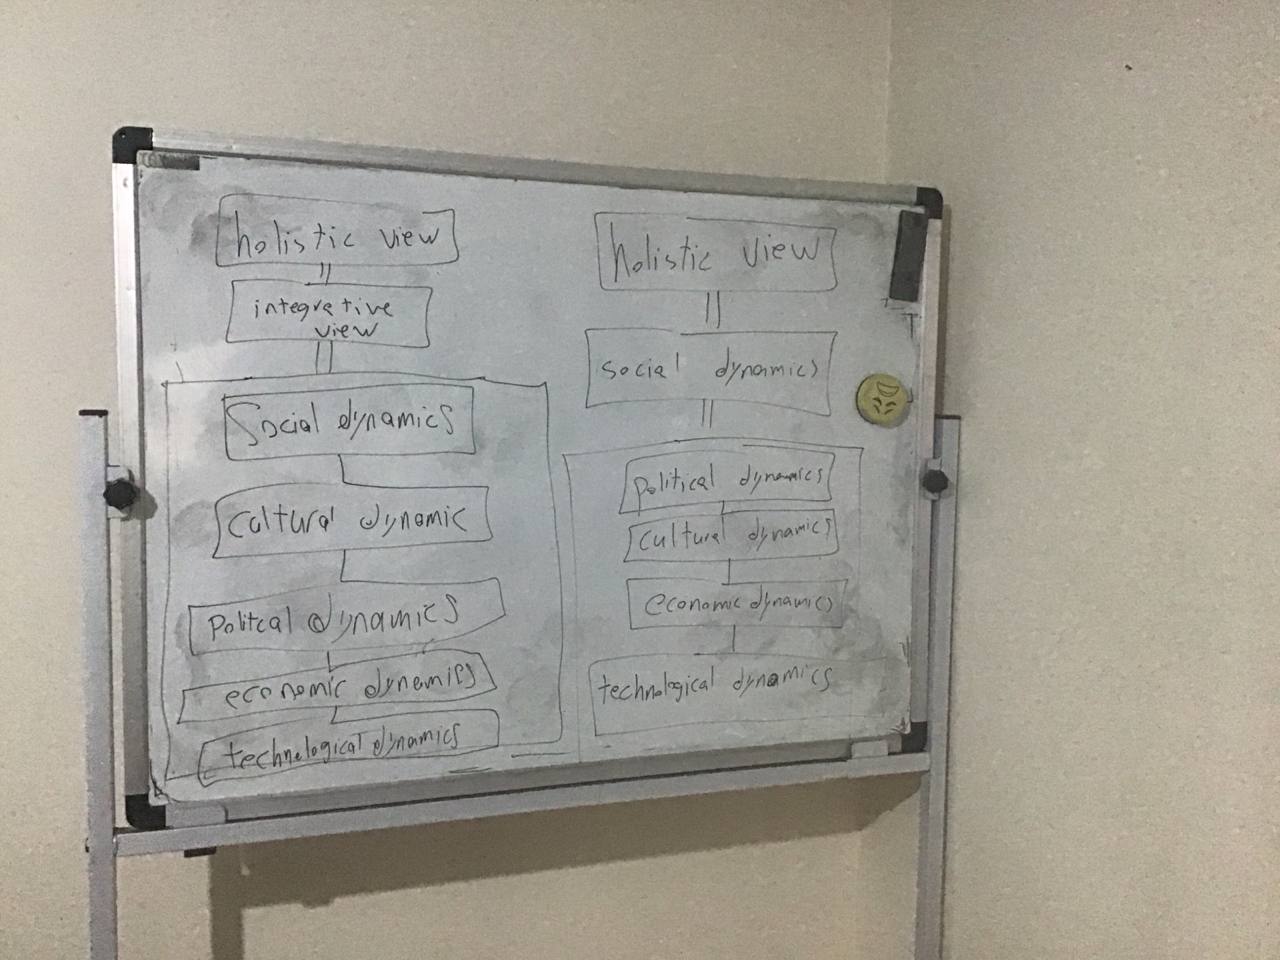 holistic view
integrative
view
Social dynamics
cultural dynamic
Politcal dynamics
economic dynamics
technological dynamics
holistic view
social dynamics
political dynamics
cultural dynamics
economic dynamics
technological dynamics